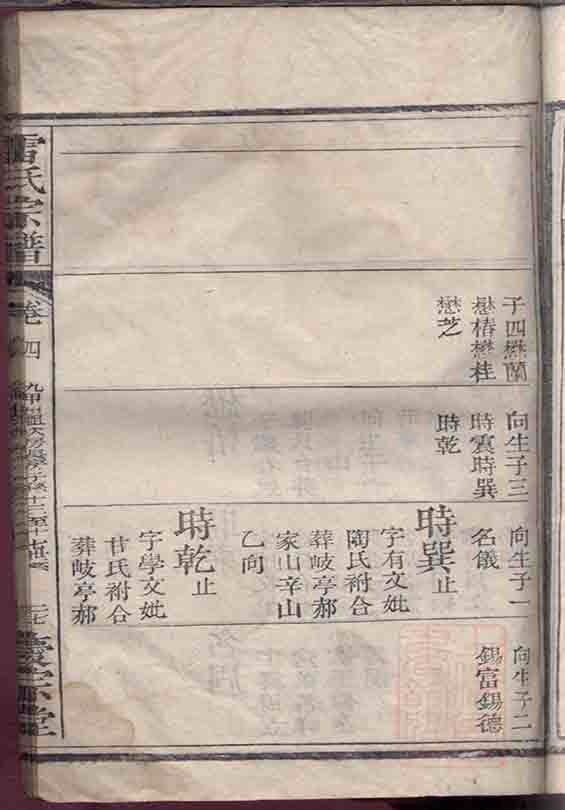 子四懋蘭
懋椿懋桂
懋芝
向生子三
時震時巽
時乾
向生子一
名儀
時巽止
字有文妣
陶氏祔合
葬岐亭郝
家山辛山
乙向
時乾止
字學文妣
甘氏祔合
葬岐亭郝
向生子二
錫富錫德
雷氏宗譜
卷四